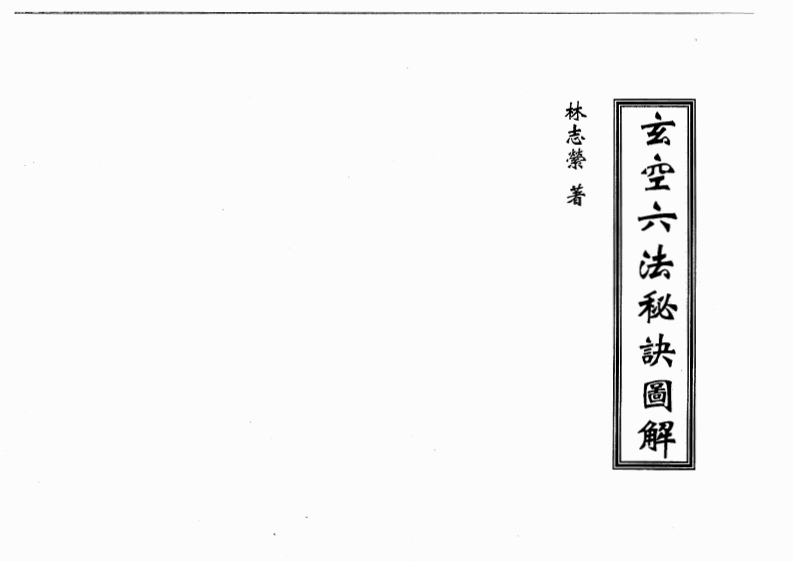 玄空六法秘訣圖解
林志縈 著